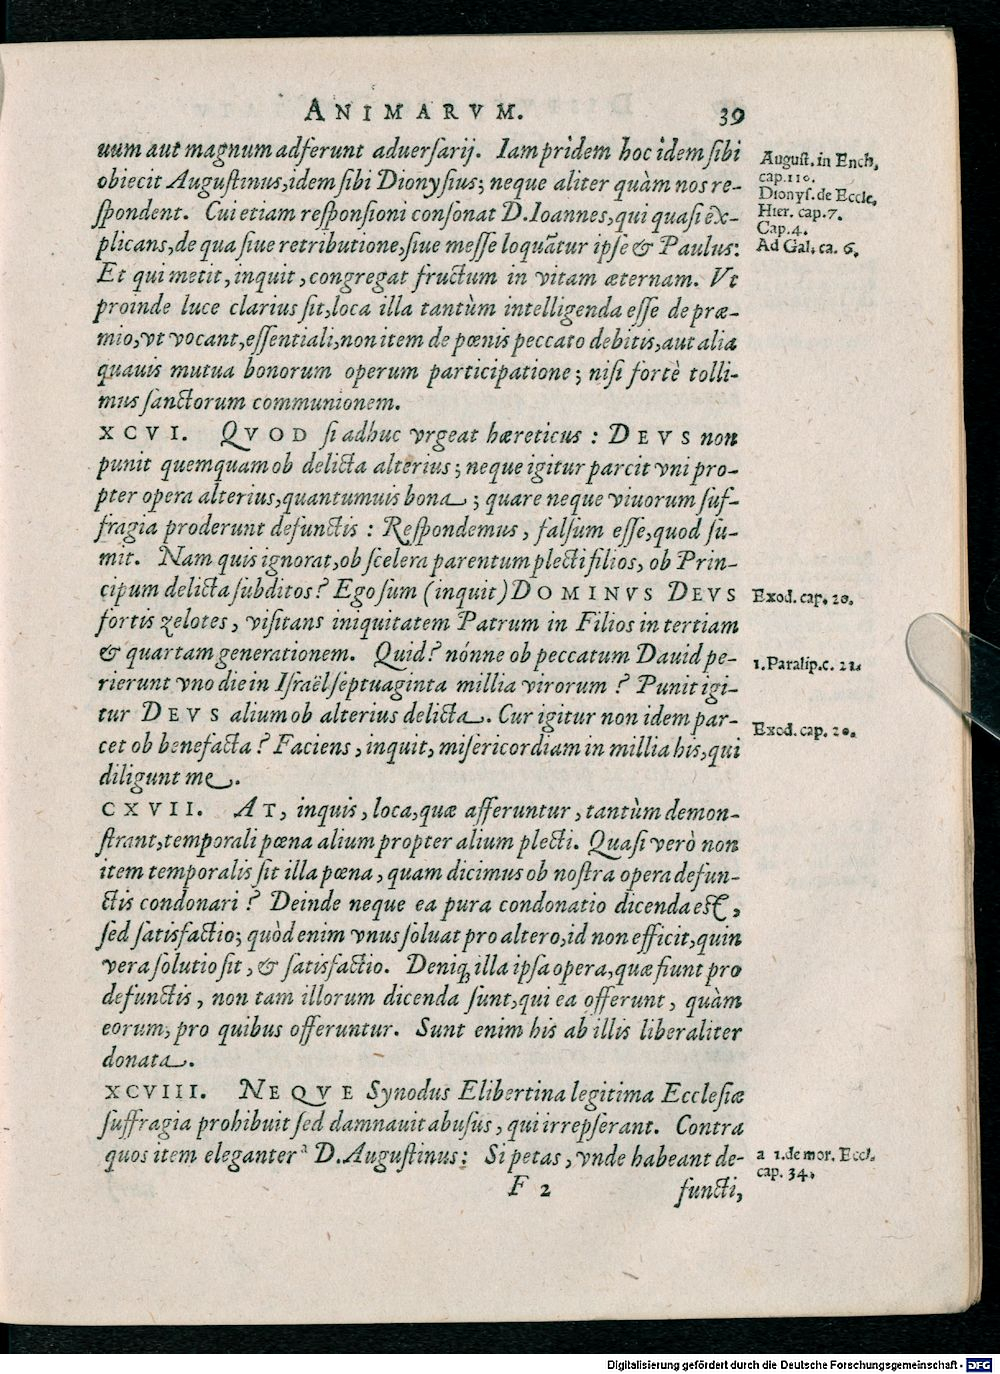 ANIMARVM. 39
uum aut magnum adferunt aduersarij. Iampridem hoc idem sibi
obiecit Augustinus, idem sibi Dionysius; neque aliter quàm nos re-
spondent. Cui etiam responsioni consonat D. Ioannes, qui quasi ex-
plicans, de qua siue retributione, siue messe loquātur ipse & Paulus:
Et qui metit, inquit, congregat fructum in vitam æternam. Vt
proinde luce clarius sit, loca illa tantùm intelligenda esse de præ-
mio, vt vocant, essentiali, non item de pœnis peccato debitis, aut alia
quauis mutua bonorum operum participatione; nisi fortè tolli-
mus sanctorum communionem.
August. in Ench,
cap. 110.
Dionys. de Eccle,
Hier. cap. 7.
Cap. 4.
Ad Gal; ca. 6.
XCVI. QVOD si adhuc vrgeat hæreticus : DEVS non
punit quemquam ob delicta alterius; neque igitur parcit vni pro-
pter opera alterius, quantumuis bona; quare neque viuorum suf-
fragia proderunt defunctis : Respondemus, falsum esse, quod su-
mit. Nam quis ignorat, ob scelera parentum plecti filios, ob Prin-
cipum delicta subditos? Ego sum (inquit) DOMINVS DEVS
fortis zelotes, visitans iniquitatem Patrum in Filios in tertiam
& quartam generationem. Quid? nónne ob peccatum Dauid pe-
rierunt vno die in Israël septuaginta millia virorum? Punit igi-
tur DEVS alium ob alterius delicta. Cur igitur non idem par-
cet ob benefacta? Faciens, inquit, misericordiam in millia his, qui
diligunt me.
Exod. cap. 20.
1. Paralip. c. 21.
Exod. cap. 20.
CXVII. AT, inquis, loca, quæ afferuntur, tantùm demon-
strant, temporali pœna alium propter alium plecti. Quasi verò non
item temporalis sit illa pœna, quam dicimus ob nostra opera defun-
ctis condonari? Deinde neque ea pura condonatio dicenda est,
sed satisfactio; quòd enim vnus soluat pro altero, id non efficit, quin
vera solutio sit, & satisfactio. Deniq; illa ipsa opera, quæ fiunt pro
defunctis, non tam illorum dicenda sunt, qui ea offerunt, quàm
eorum, pro quibus offeruntur. Sunt enim his ab illis liberaliter
donata.
XCVIII. NEQVE Synodus Elibertina legitima Ecclesiæ
suffragia prohibuit sed damnauit abusus, qui irrepserant. Contra
quos item eleganter a D. Augustinus: Si petas, vnde habeant de-
a 1. de mor. Eccl.
cap. 34.
F 2 functi,
Digitalisierung gefördert durch die Deutsche Forschungsgemeinschaft - DFG